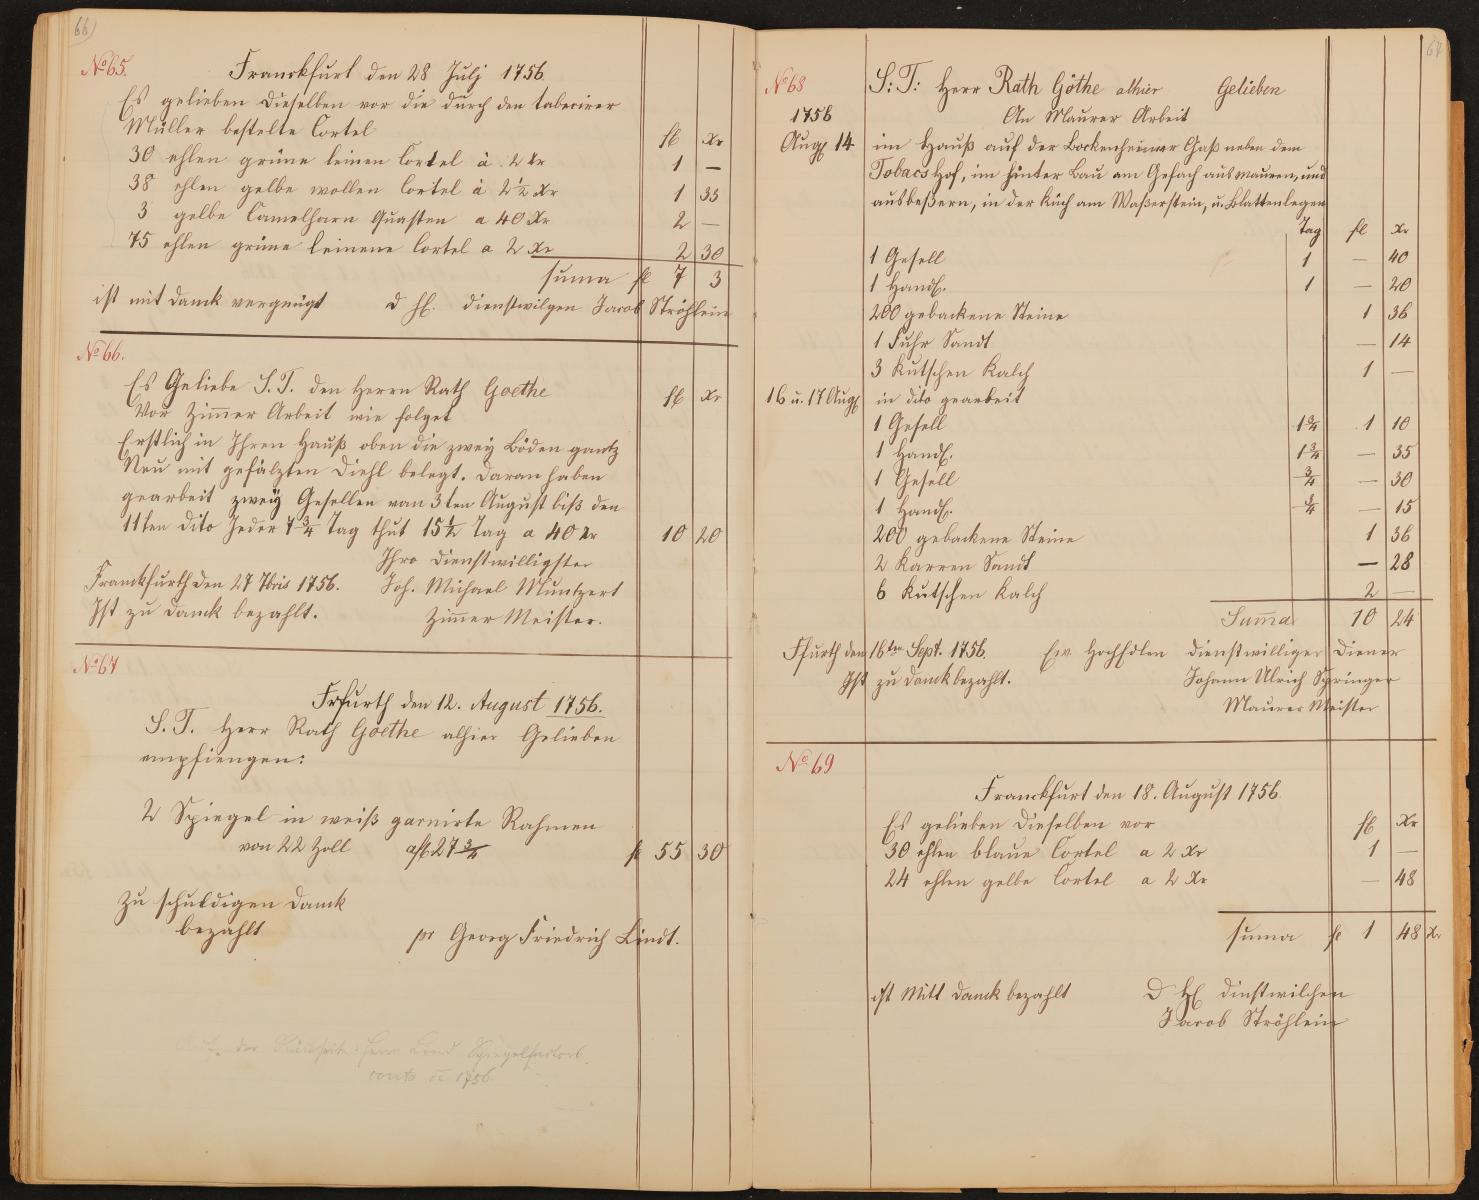 66
No 65.
Franckfurt den 28 Julj 1756.
Es gelieben Dieselben vor die durch den tabecirer
Müller bestelte Cortel
fl xr
30 ehlen grüne leinen Cortel à 2 xr 1 —
38 ehlen gelbe wollen Cortel à 2½ xr 1 35
3 gelbe Camelharn Quasten a 40 xr 2 —
75 ehlen grüne leinene Cortel a 2 xr 2 30
suma fl 7 3
ist mit danck vergnügt d H. dienstwilgen Jacob Ströhlein
No 66.
Es Geliebe S. T. den Herrn Rath Goethe
Vor Zim̄er Arbeit wie folget
fl xr
Erstlich in Ihren Hauß oben die zwey Böden gantz
Neu mit gefälzten Diehl belegt. Daran haben
gearbeit zweÿ Gesellen vam 3ten August biß den
11ten dito Jeder 7¾ Tag thut 15½ Tag a 40 xr 10 20
Ihro Dienstwilligster
Franckfurth den 27 7bris 1756. Joh. Michael Muntzert
Ist zu danck bezahlt. Zim̄er Meister.
No 67
Frfurth den 12. August 1756.
S. T. Herr Rath Goethe alhier Gelieben
empfiengen:
2 Spiegel in weiß garnirte Rahmen
von 22 Zoll a fl 27¾ fl 55 30
Zu schuldigen Danck
bezahlt
pr Georg Friedrich Lindt.
Auf der Rückseite: Herrn Lind Spiegelfactors
conto de 1756.
67
No 68
S: T: Herr Rath Göthe alhier Gelieben
1756 An Maurer Arbeit
Aug 14 im Hauß auf der Bockenheimer Gaß neben dem
Tobacs Hof, im hinter Bau am Gefach aus mauren, und
ausbeßern, in der Küch am Waßerstein, u. Blattenlegen
Tag fl xr
1 Gesell 1 — 40
1 Handl. 1 — 20
200 gebackene Steine 1 36
1 Fuhr Sandt — 14
3 Kutschen Kalch 1 —
16 u. 17 Aug in dito gearbeit
1 Gesell 1¾ 1 10
1 Handl. 1¾ — 35
1 Gesell ¾ — 30
1 Handl. ¾ — 15
200 gebackene Steine 1 36
2 Karren Sandt — 28
6 Kutschen Kalch 2 —
Sum̄a 10 24
Ffurth den 16ten Sept. 1756. Ew. HochEdlen dienstwilliger Diener
Ist zu danck bezahlt. Johann Ulrich Springer
Maurer Meister
No 69
Franckfurt den 18. August 1756.
Es gelieben Dieselben vor fl xr
30 ehlen blaue Cortel a 2 xr 1 —
24 ehlen gelbe Cortel a 2 xr — 48
suma fl 1 48 xr
ist Mitt danck bezahlt D H dinstwilchen
Jacob Ströhlein